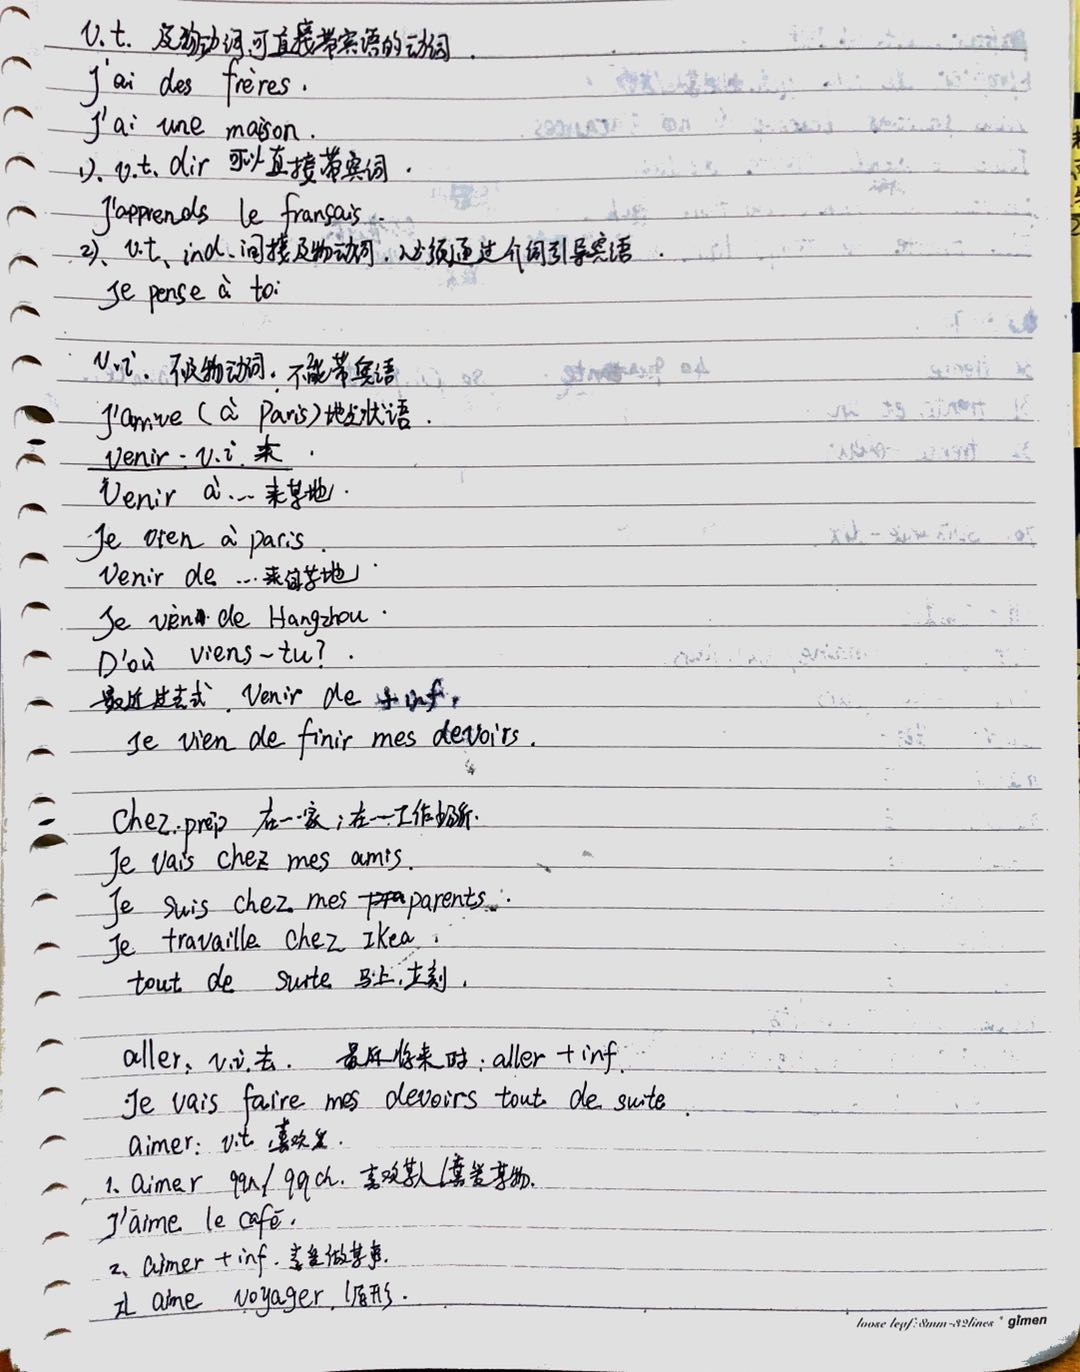 v.t. 及物动词,可直接带宾语的动词.
j'ai des frères.
j'ai une maison.
1)、v.t、dir 可以直接带宾词.
J'apprends le français.
2)、v.t、ind、间接及物动词,必须通过介词引导宾语.
Je pense à toi
v.i. 不及物动词,不能带宾语
J'arrive (à Paris)地点状语.
venir. v.i. 来.
Venir à... 来某地.
Je vien à paris.
Venir de ...来自某地.
Je vien de Hangzhou.
D'où viens-tu?.
最近过去式. Venir de + inf.
Je vien de finir mes devoirs.
chez.prep 在…家;在…工作场所.
Je vais chez mes amis.
Je suis chez mes parents.
Je travaille chez Ikea.
tout de suite 马上,立刻.
aller, v.i.去. 最近将来时:aller + inf.
Je vais faire mes devoirs tout de suite.
aimer: v.t 喜欢爱.
1、aimer qqn/ qqch. 喜欢某人/喜爱某物.
J'aime le café.
2、aimer + inf. 喜爱做某事.
Il aime voyager.(原形).
loose leaf:8mm-32lines * gimen